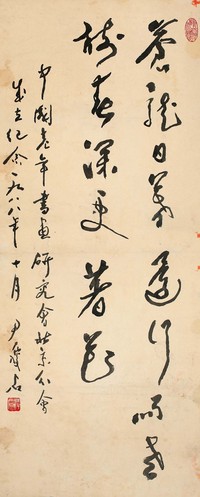 蒼龍日暮還行雨老
樹春深更著花
中國老年書画研究會北京分會
成立纪念一九八八年十月 尹瘦石